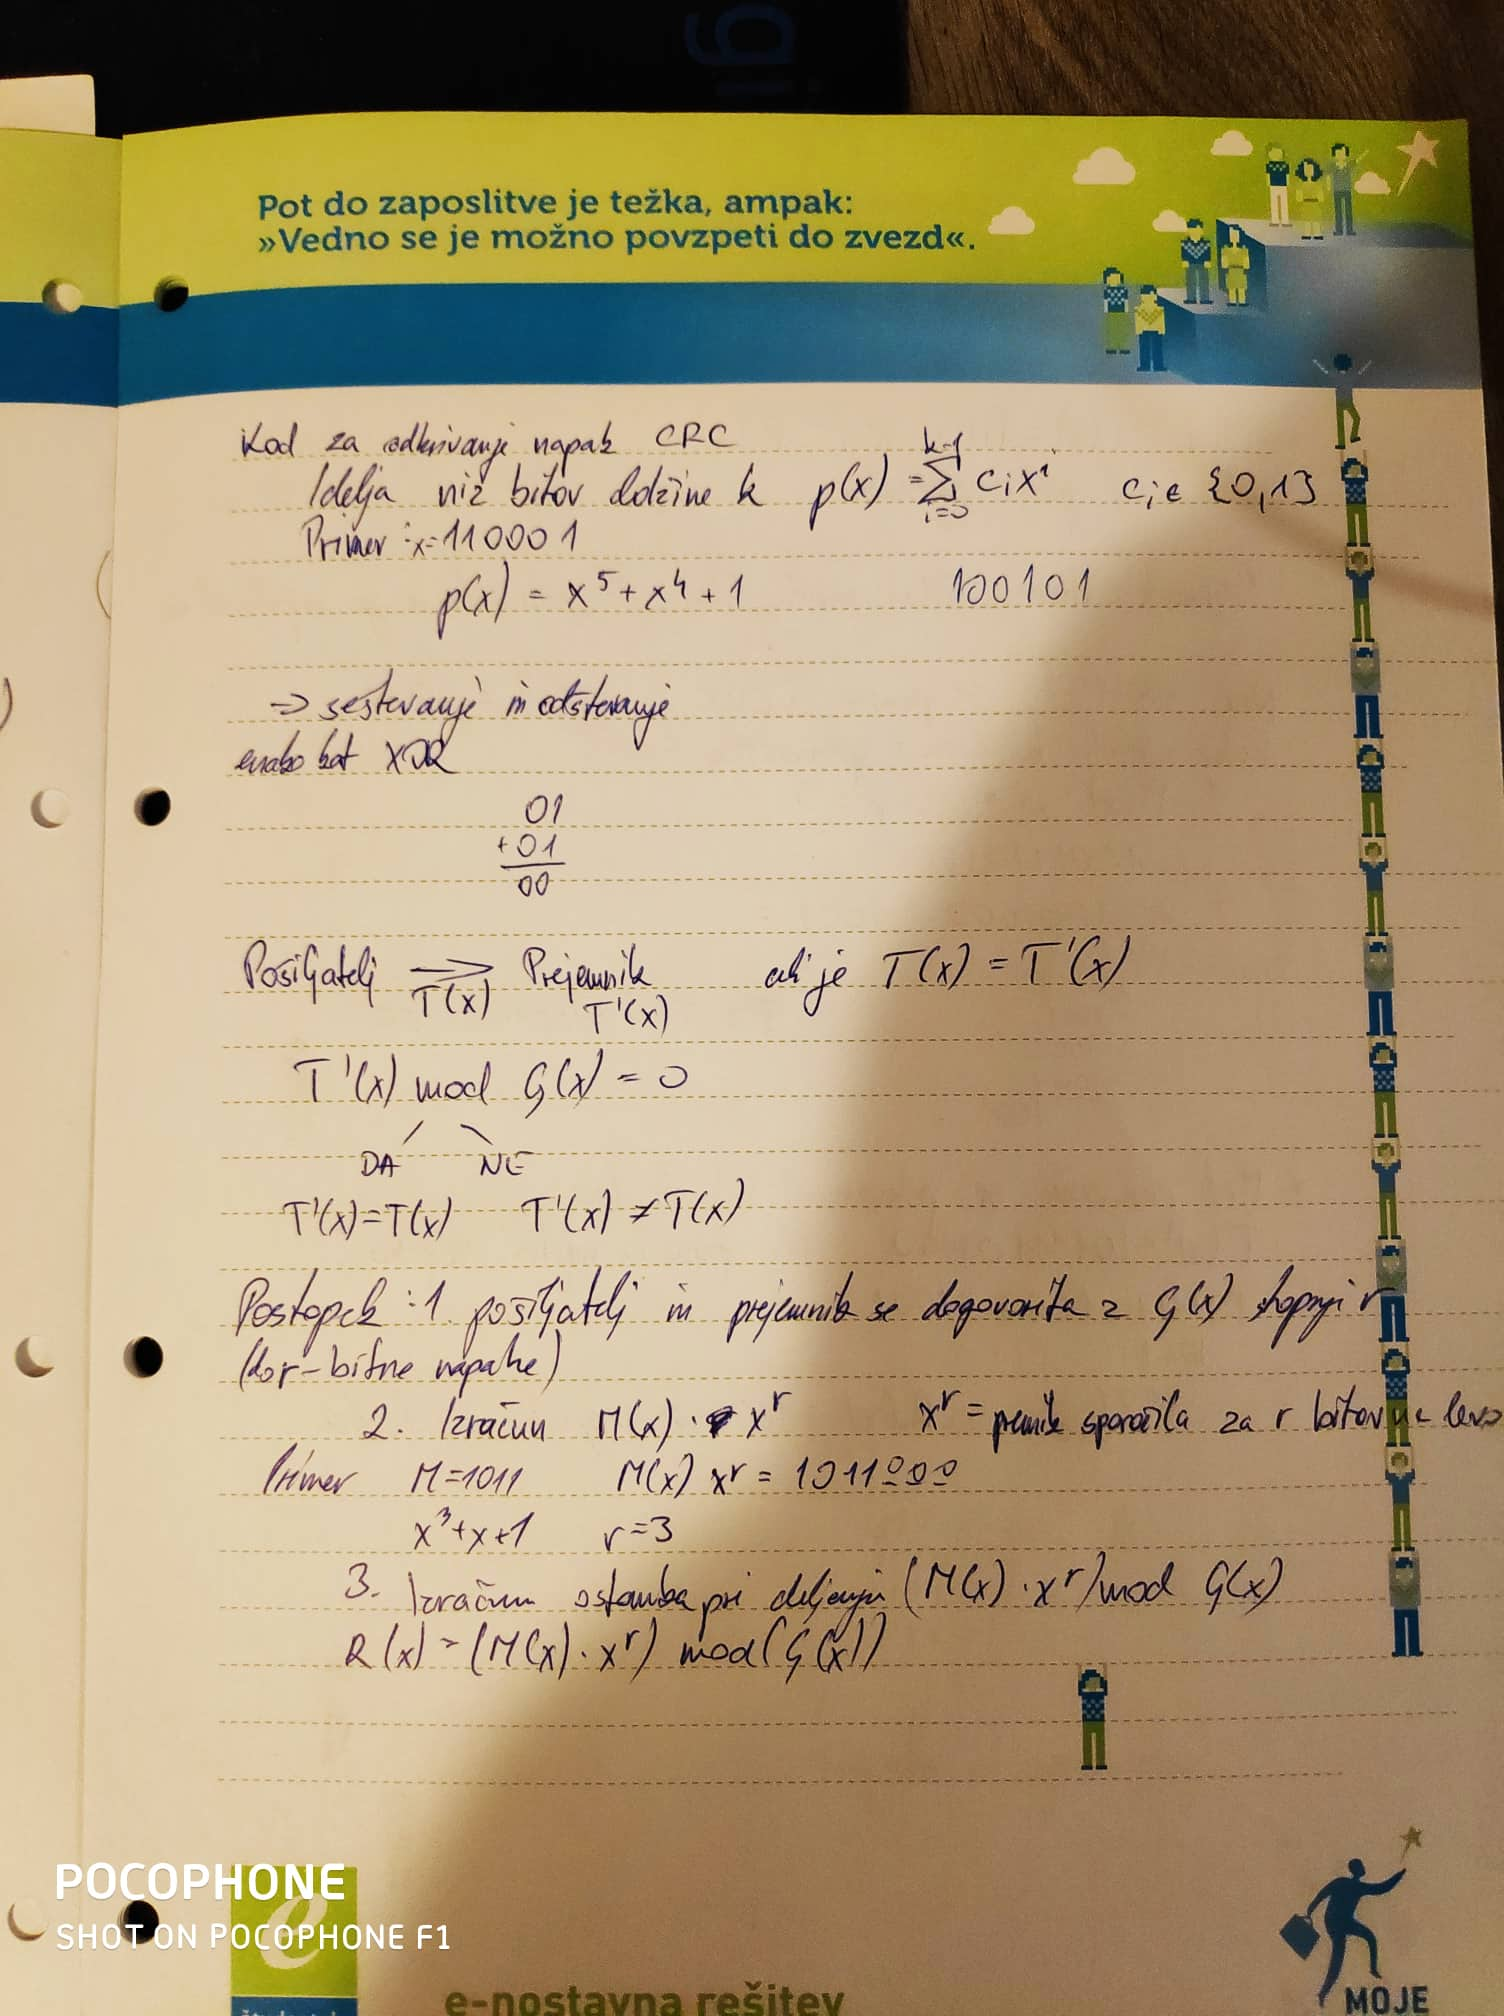 Pot do zaposlitve je težka, ampak:
»Vedno se je možno povzpeti do zvezd«.
Kod za odkrivanje napak CRC
Idelja niz bitov dolzine k p(x) = k-1 Σ i=0 cᵢxⁱ cᵢ ∈ {0,1}
Primer: x=110001
p(x) = x⁵ + x⁴ + 1 100101
=> sestevanje in odstevanje
enako kot XOR
01
+ 01
00
Pošiljatelj → Prejemnik ali je T(x) = T'(x)
T(x) T'(x)
T'(x) mod G(x) = 0
DA NE
T'(x)=T(x) T'(x) ≠ T(x)
Postopek: 1. pošiljatelj in prejemnik se dogovorita z G(x) stopnji r
(do r-bitne napake)
2. Izračun M(x) · xʳ xʳ = premik sporočila za r bitov na levo
Primer M=1011 M(x) xʳ = 1011000
x³+x+1 r=3
3. Izračun ostanka pri deljenju (M(x) · xʳ) mod G(x)
R(x) = (M(x) · xʳ) mod (G(x))
POCOPHONE
SHOT ON POCOPHONE F1
e
e-nostavna rešitev
MOJE